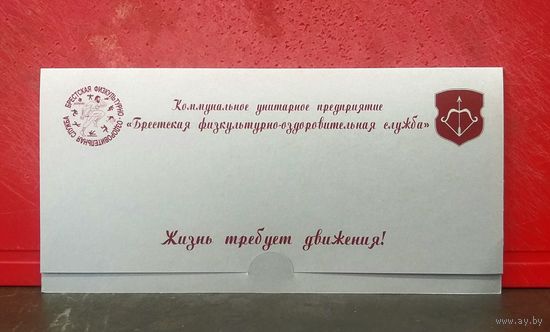 Коммунальное унитарное предприятие
«Брестская физкультурно-оздоровительная служба»
БРЕСТСКАЯ ФИЗКУЛЬТУРНО-ОЗДОРОВИТЕЛЬНАЯ СЛУЖБА
Жизнь требует движения!
www.ay.by